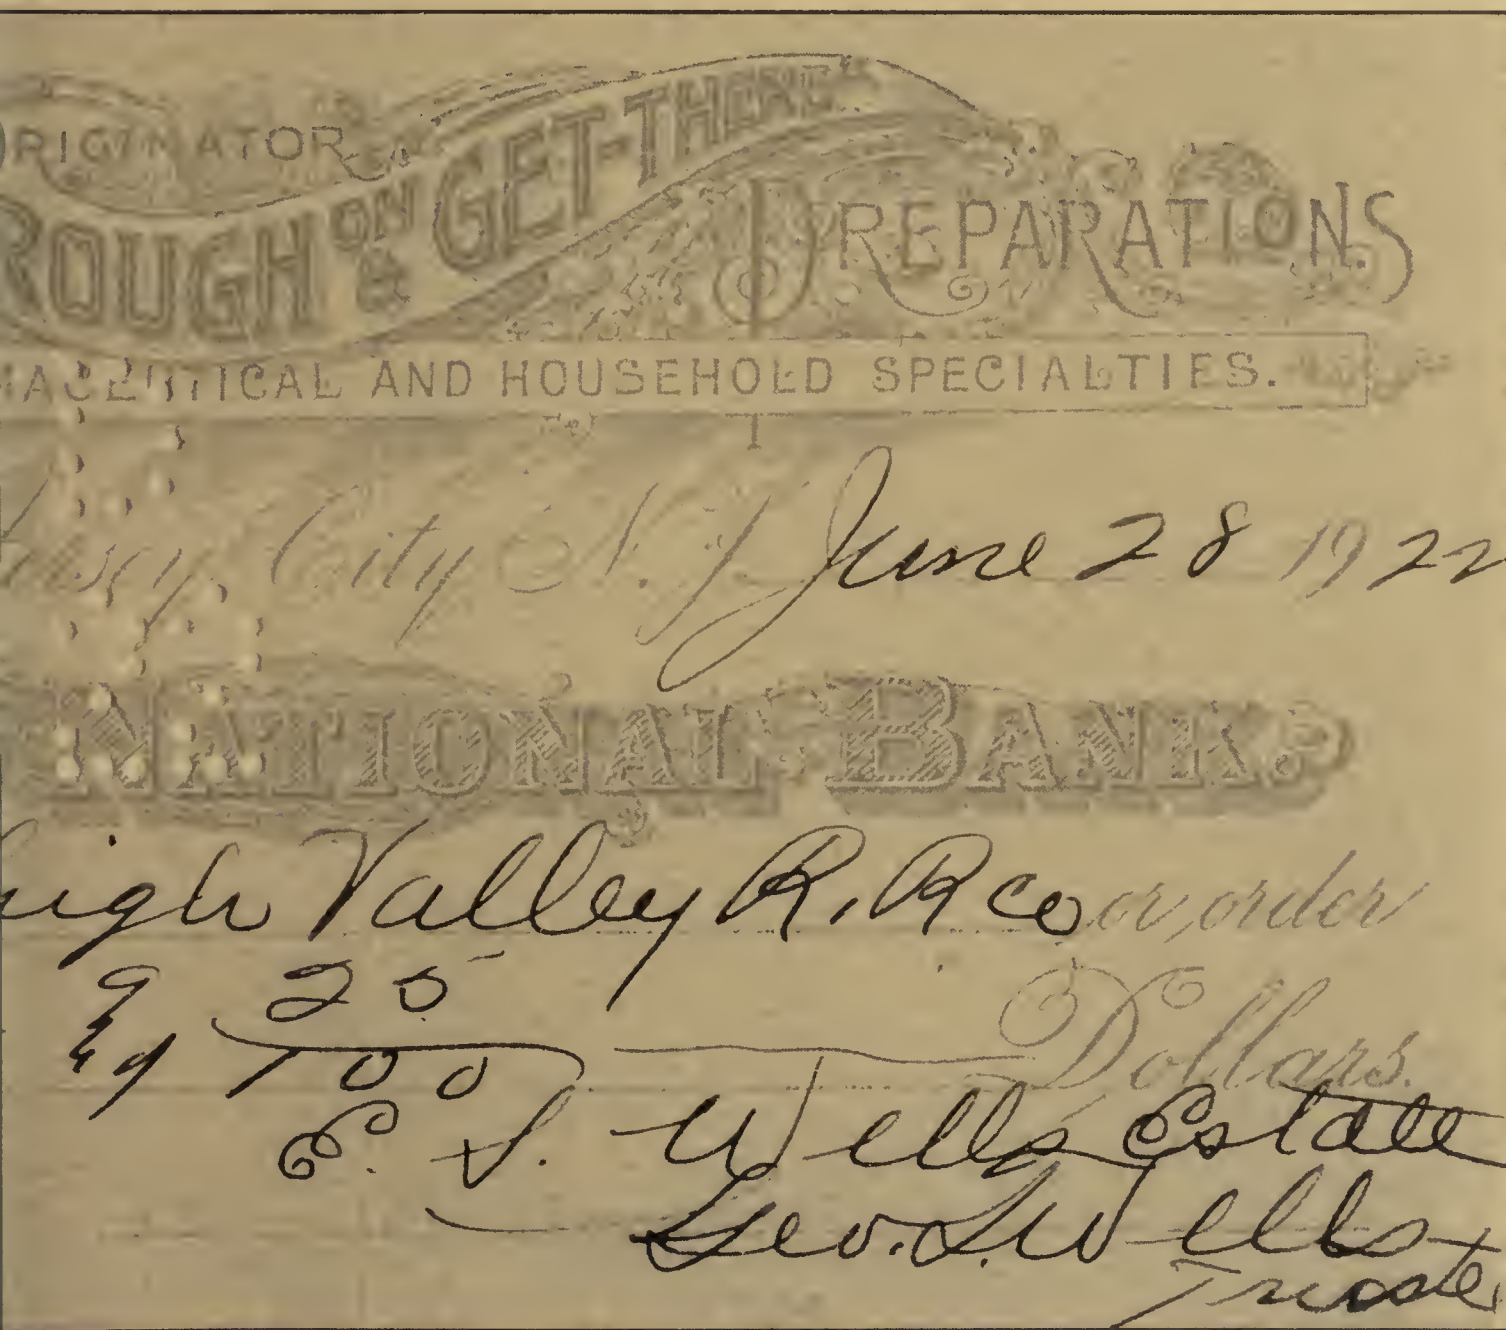 ORIGINATOR
ROUGH ON & GET-THERE"
PREPARATIONS.
MACEUTICAL AND HOUSEHOLD SPECIALTIES.
City N.J. June 28 1922
NATIONAL BANK
high Valley R. R Co or order
25
100 Dollars.
E. S. Wells Estate
Geo. S. Wells
Trustee